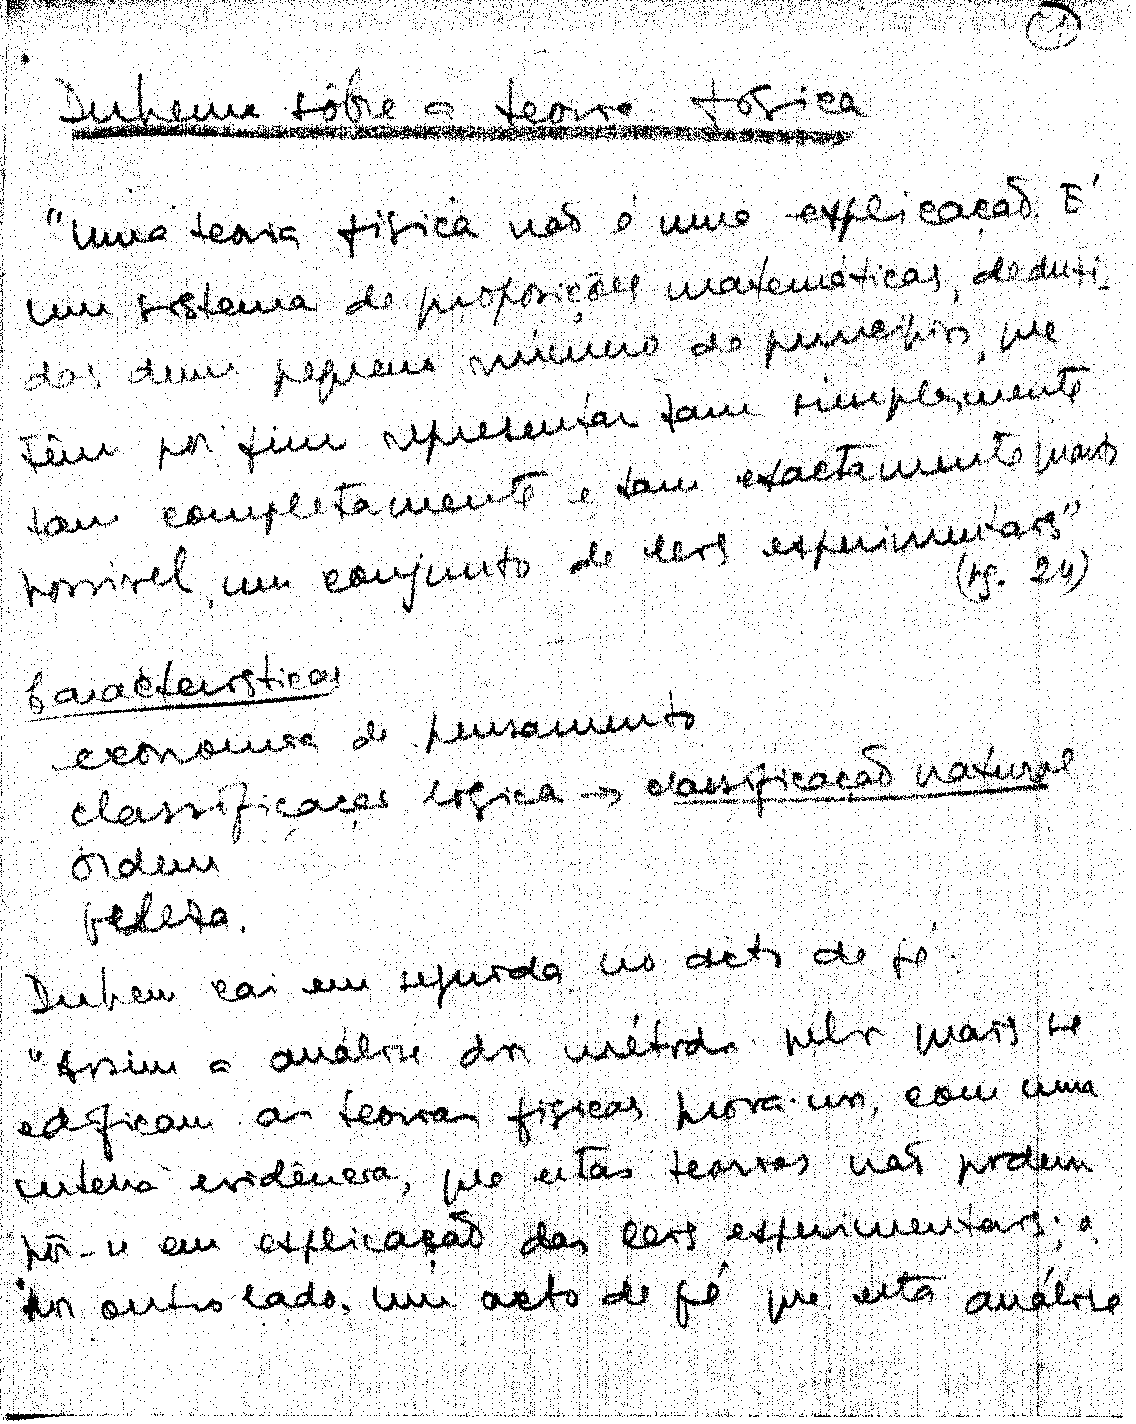 1
Duhem sôbre a teoria física
"Uma teoria física não é uma explicação. É
um sistema de proposições matemáticas, deduzi-
das dum pequeno número de princípios, que
têm por fim representar tam simplesmente
tam completamente e tam exactamente quanto
possível, um conjunto de leis experimentais"
(pg. 24)
Características
economia de pensamento
classificação lógica → classificação natural
ordem
beleza.
Duhem cai em seguida no acto de fé.
"Assim a análise dos métodos pelos quais se
edificam as teorias físicas prova-nos, com uma
inteira evidência, que estas teorias não podem
pôr-se em explicação das leis experimentais; e,
por outro lado, um acto de fé que esta análise